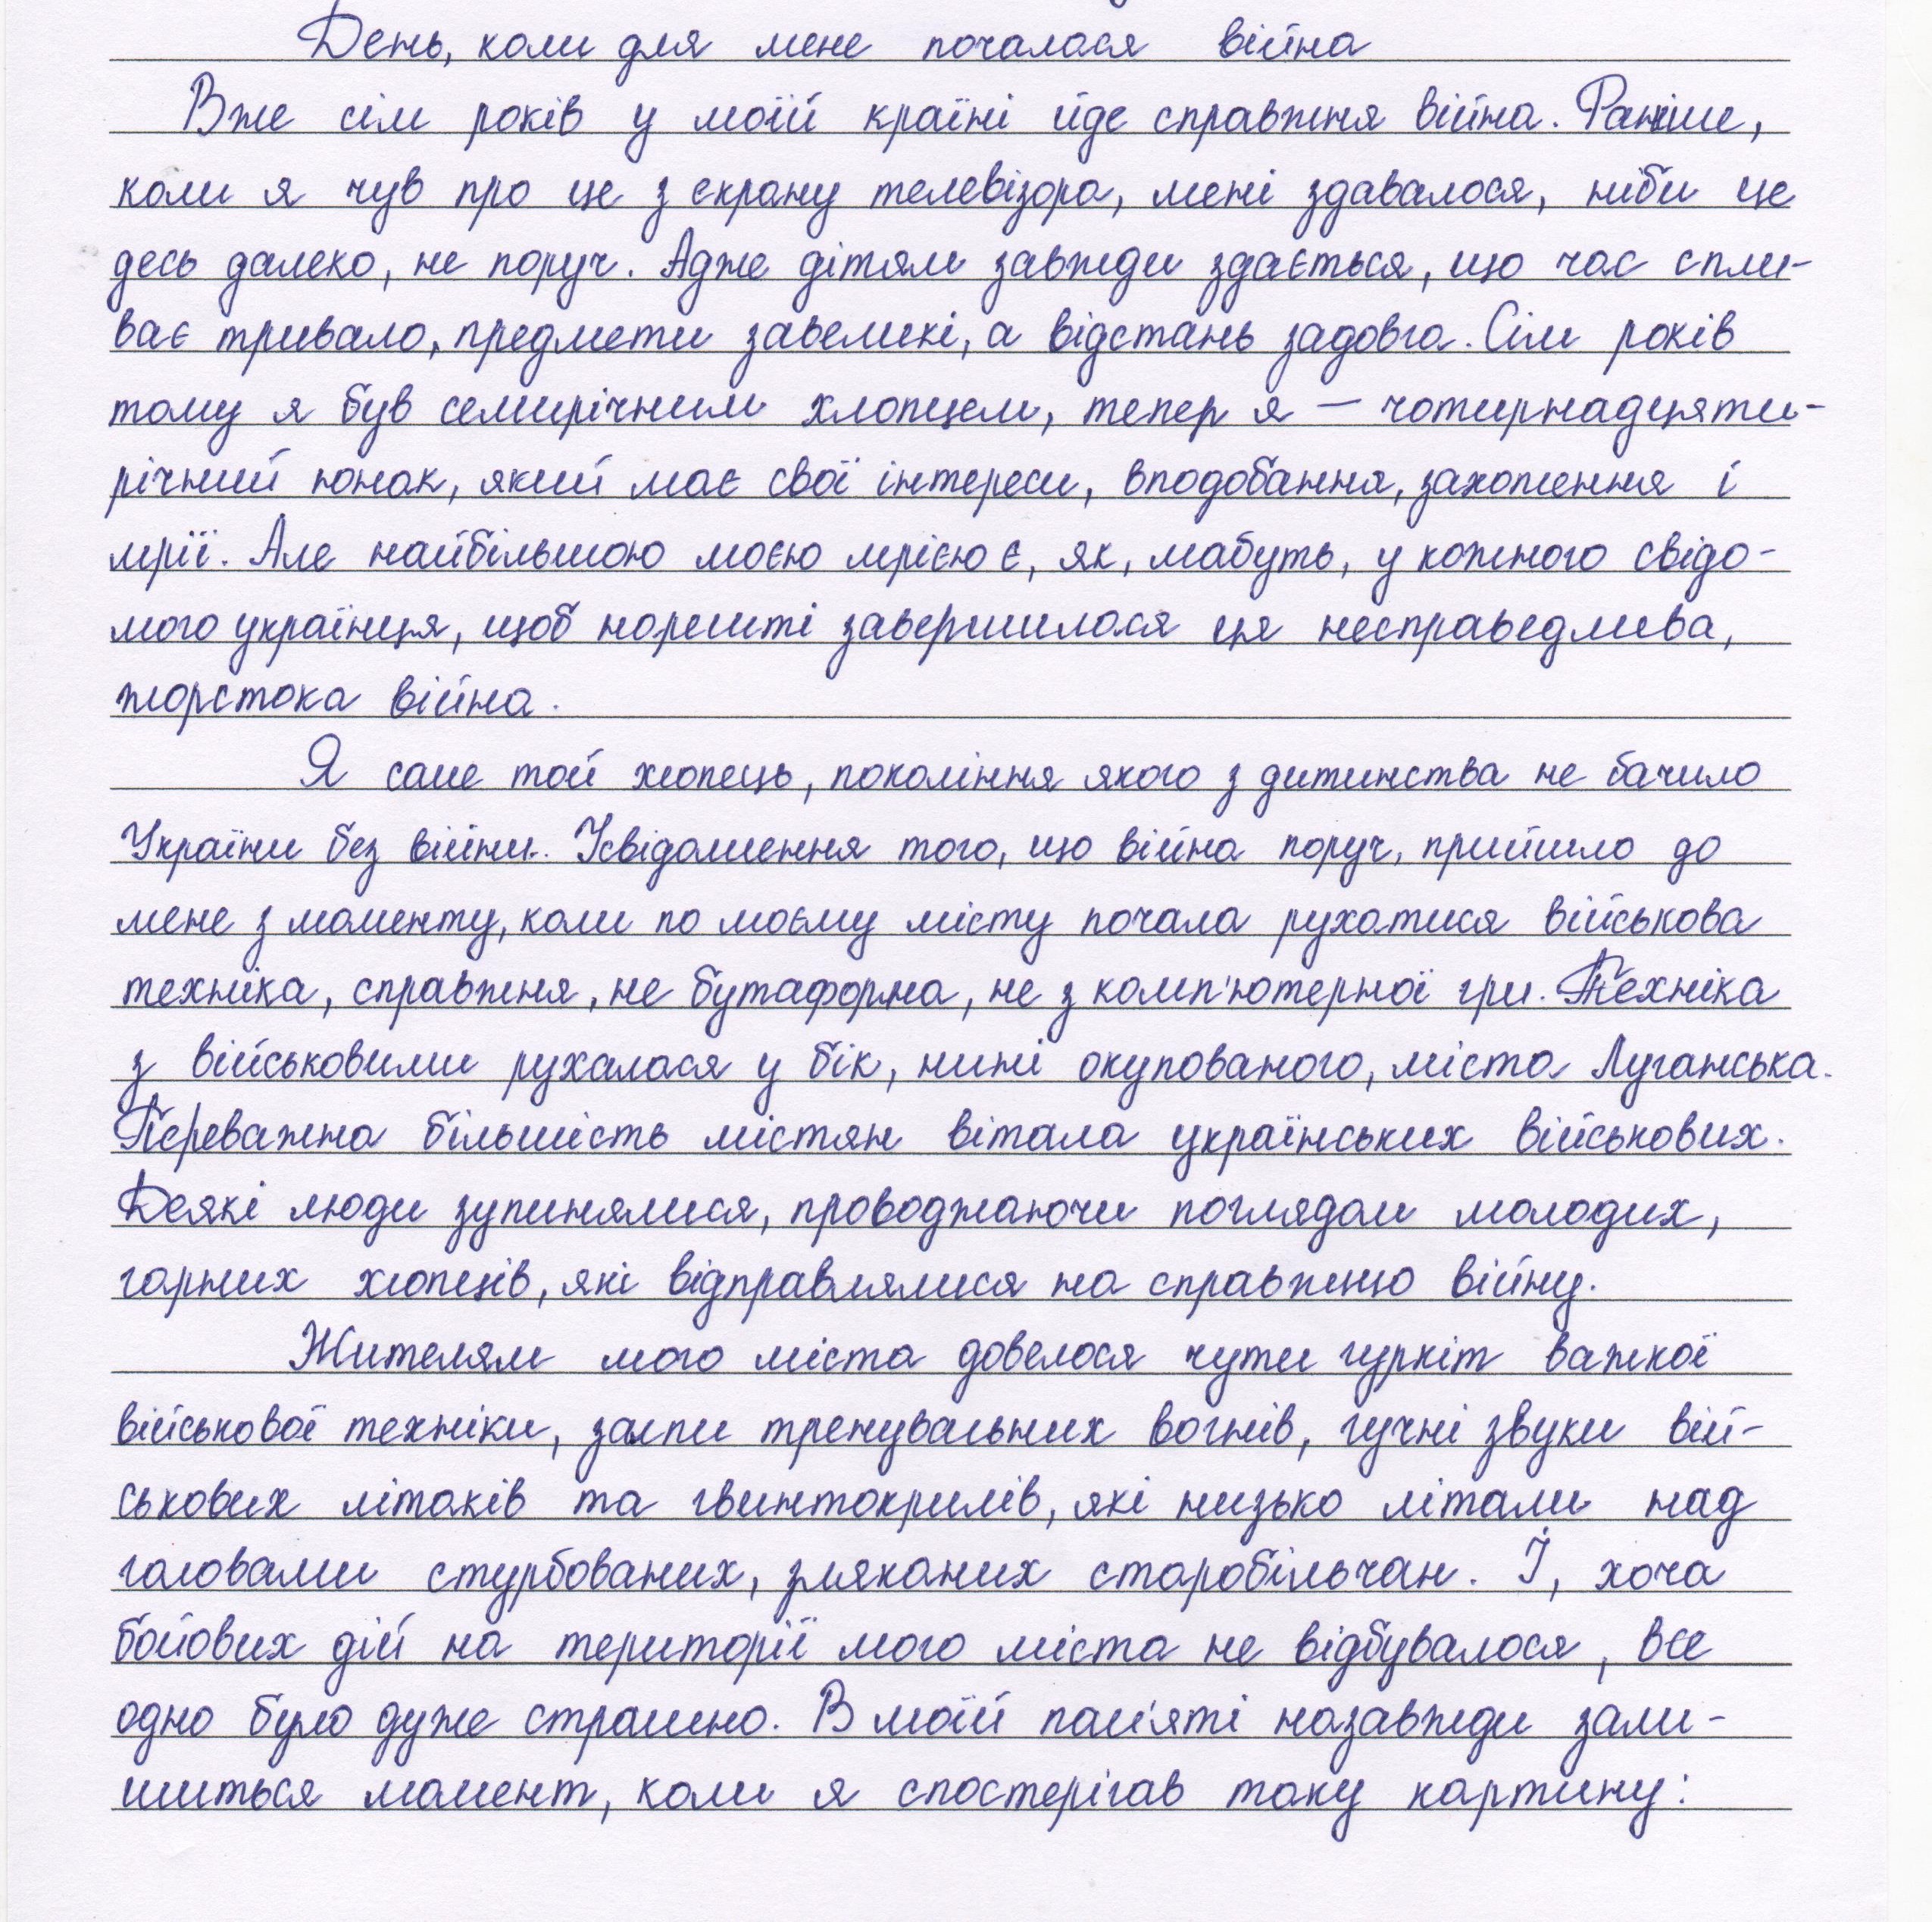 День, коли для мене почалася війна
Вже сім років у моїй країні йде справжня війна. Раніше,
коли я чув про це з екрану телевізора, мені здавалося, ніби це
десь далеко, не поруч. Адже дітям завжди здається, що час спли-
ває тривало, предмети завеликі, а відстань задовга. Сім років
тому я був семирічним хлопцем, тепер я — чотирнадцяти-
річний юнак, який має свої інтереси, вподобання, захоплення і
мрії. Але найбільшою моєю мрією є, як, мабуть, у кожного свідо-
мого українця, щоб нарешті завершилася ця несправедлива,
жорстока війна.
Я саме той хлопець, покоління якого з дитинства не бачило
України без війни. Усвідомлення того, що війна поруч, прийшло до
мене з моменту, коли по моєму місту почала рухатися військова
техніка, справжня, не бутафорна, не з комп'ютерної гри. Техніка
з військовими рухалася у бік, нині окупованого, міста Луганська.
Переважна більшість містян вітала українських військових.
Деякі люди зупинялися, проводжаючи поглядом молодих,
гарних хлопців, які відправлялися на справжню війну.
Жителям мого міста довелося чути гуркіт важкої
військової техніки, залпи тренувальних вогнів, гучні звуки вій-
ськових літаків та гвинтокрилів, які низько літали над
головами стурбованих, зляканих старобільчан. Й, хоча
бойових дій на території мого міста не відбувалося, все
одно було дуже страшно. В моїй пам'яті назавжди зали-
шиться момент, коли я спостерігав таку картину: